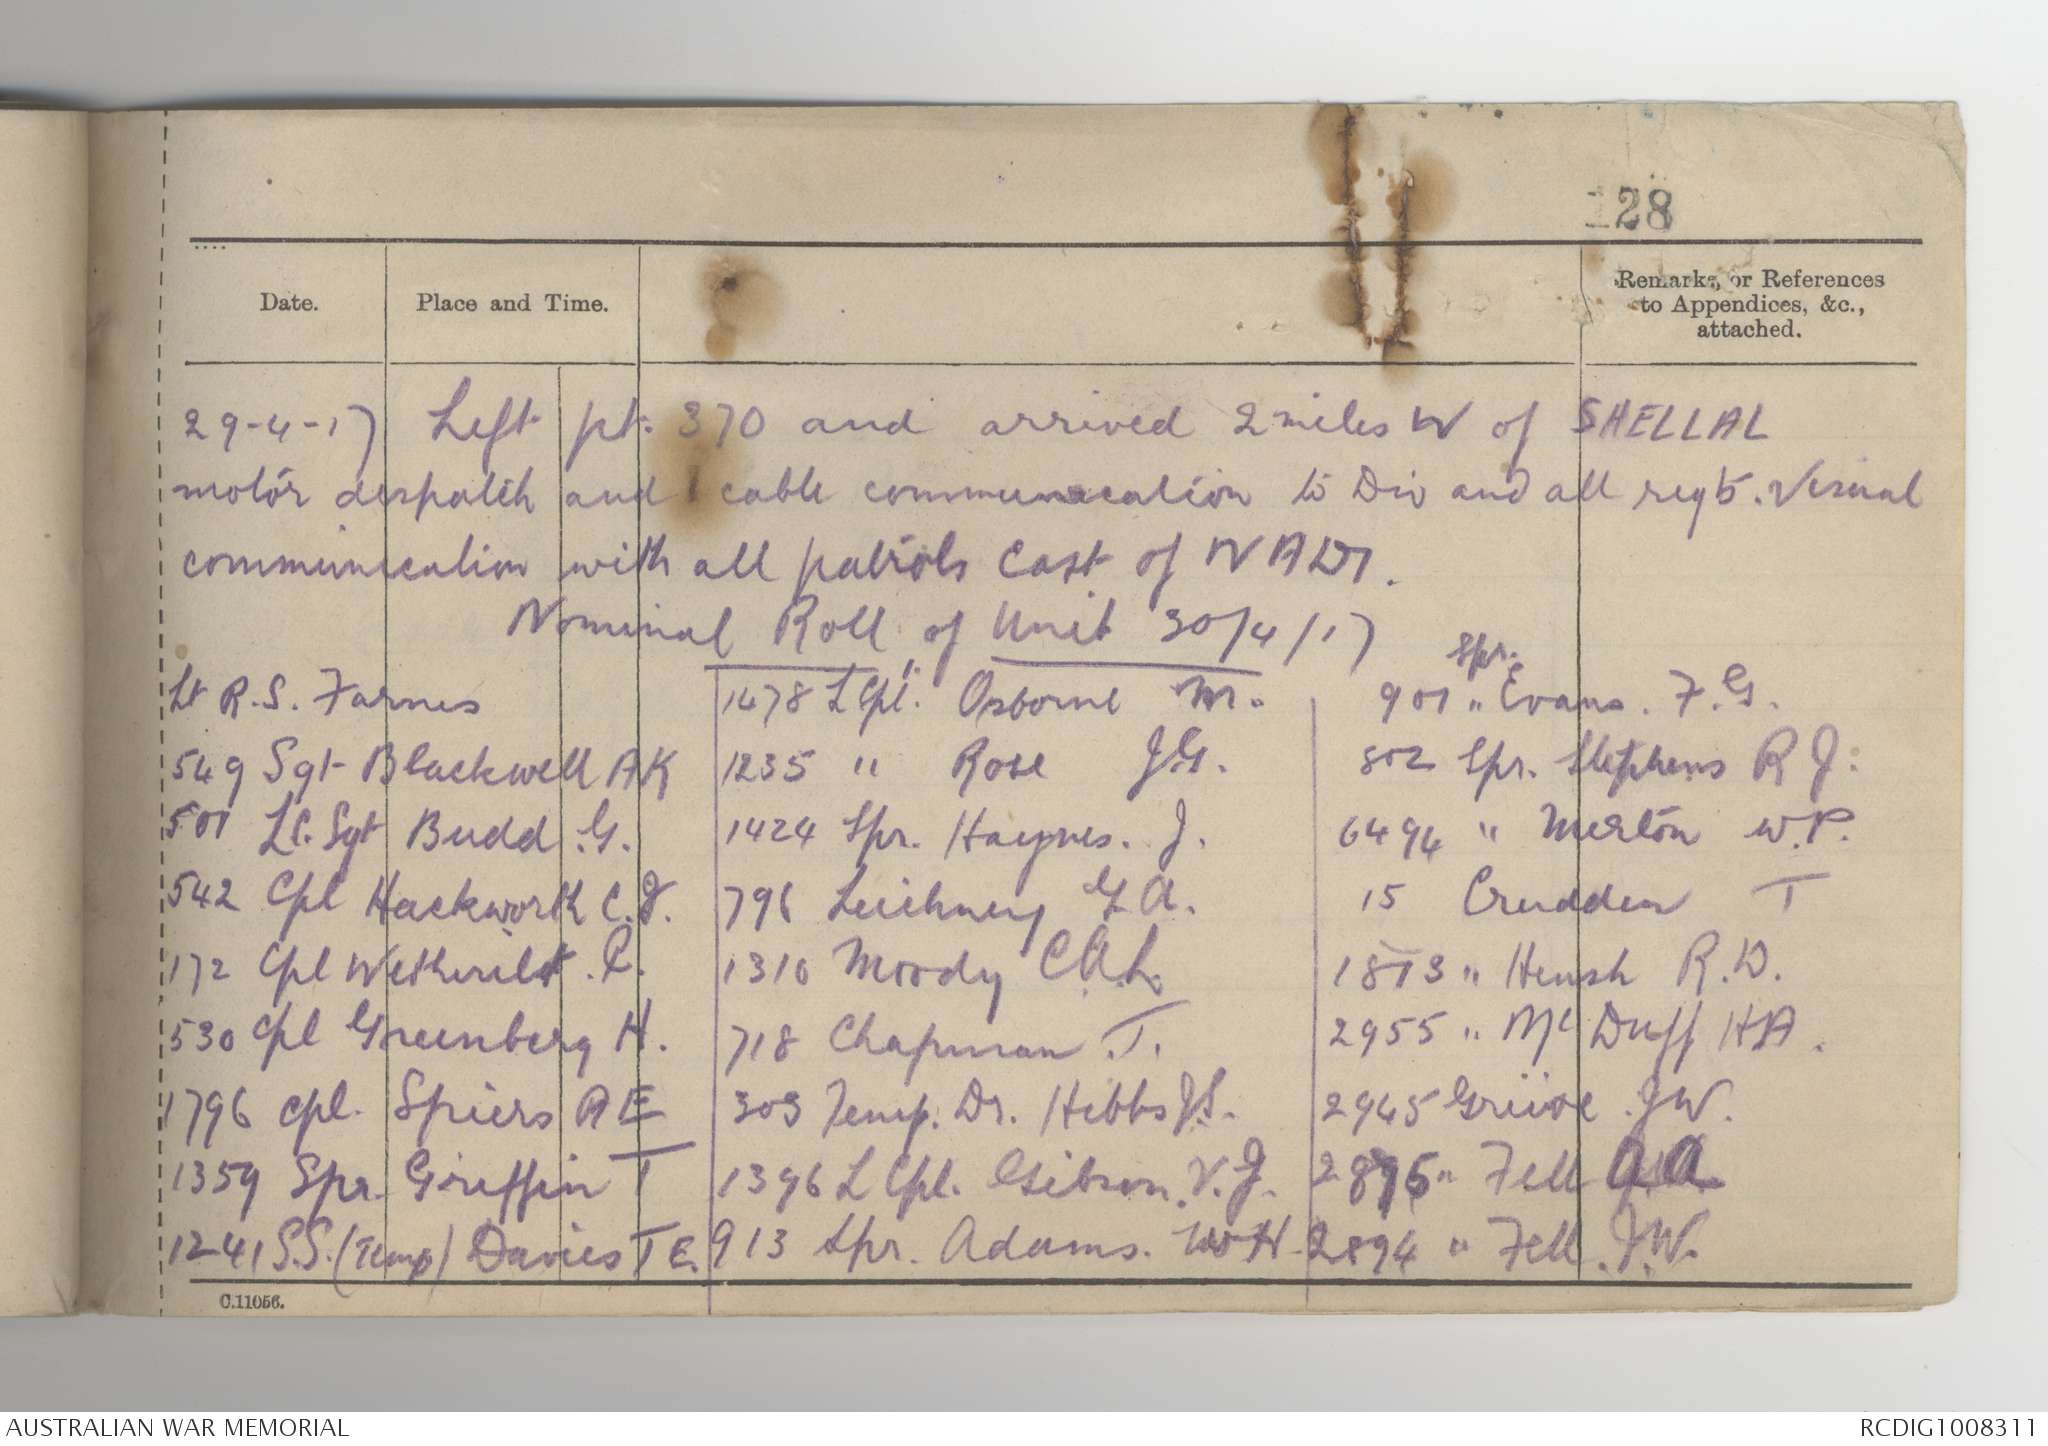 128
Date.
Place and Time.
Remarks, or References
to Appendices, &c.,
attached.
29-4-17 Left pt. 370 and arrived 2 miles W of SHELLAL
motor despatch and cable communication to Div and all regts. Visual
communication with all patrols East of WADI.
Nominal Roll of Unit 30/4/17
Lt R.S. Farnes
549 Sgt Blackwell A K
501 L. Sgt Budd .G.
542 Cpl Hackworth C.J.
172 Cpl Wetherilt .R.
530 Cpl Greenberg H.
1796 Cpl. Spiers A E
1359 Spr. Griffin T
1241 S.S. (Temp) Davies T E.
1478 L Cpl. Osborne M.
1235 " Rose J.G.
1424 Spr. Haynes. J.
796 G A.
1310 Moody C.A.L.
718 Chapman .T.
303 Temp. Dr. Hibbs J.S.
1396 L Cpl. Gibson. V. J.
913 Spr. Adams. W H.
Spr.
901 " Evans. F.G.
802 Spr. Stephens R J.
6494 " Merton W.P.
15 Crudden T
1813 " Hensh R.D.
2955 " McDuff H A.
2945 Grieve .J W.
2895 " Fell A A
2894 " Fell .J.W.
C.11056.
AUSTRALIAN WAR MEMORIAL
RCDIG1008311